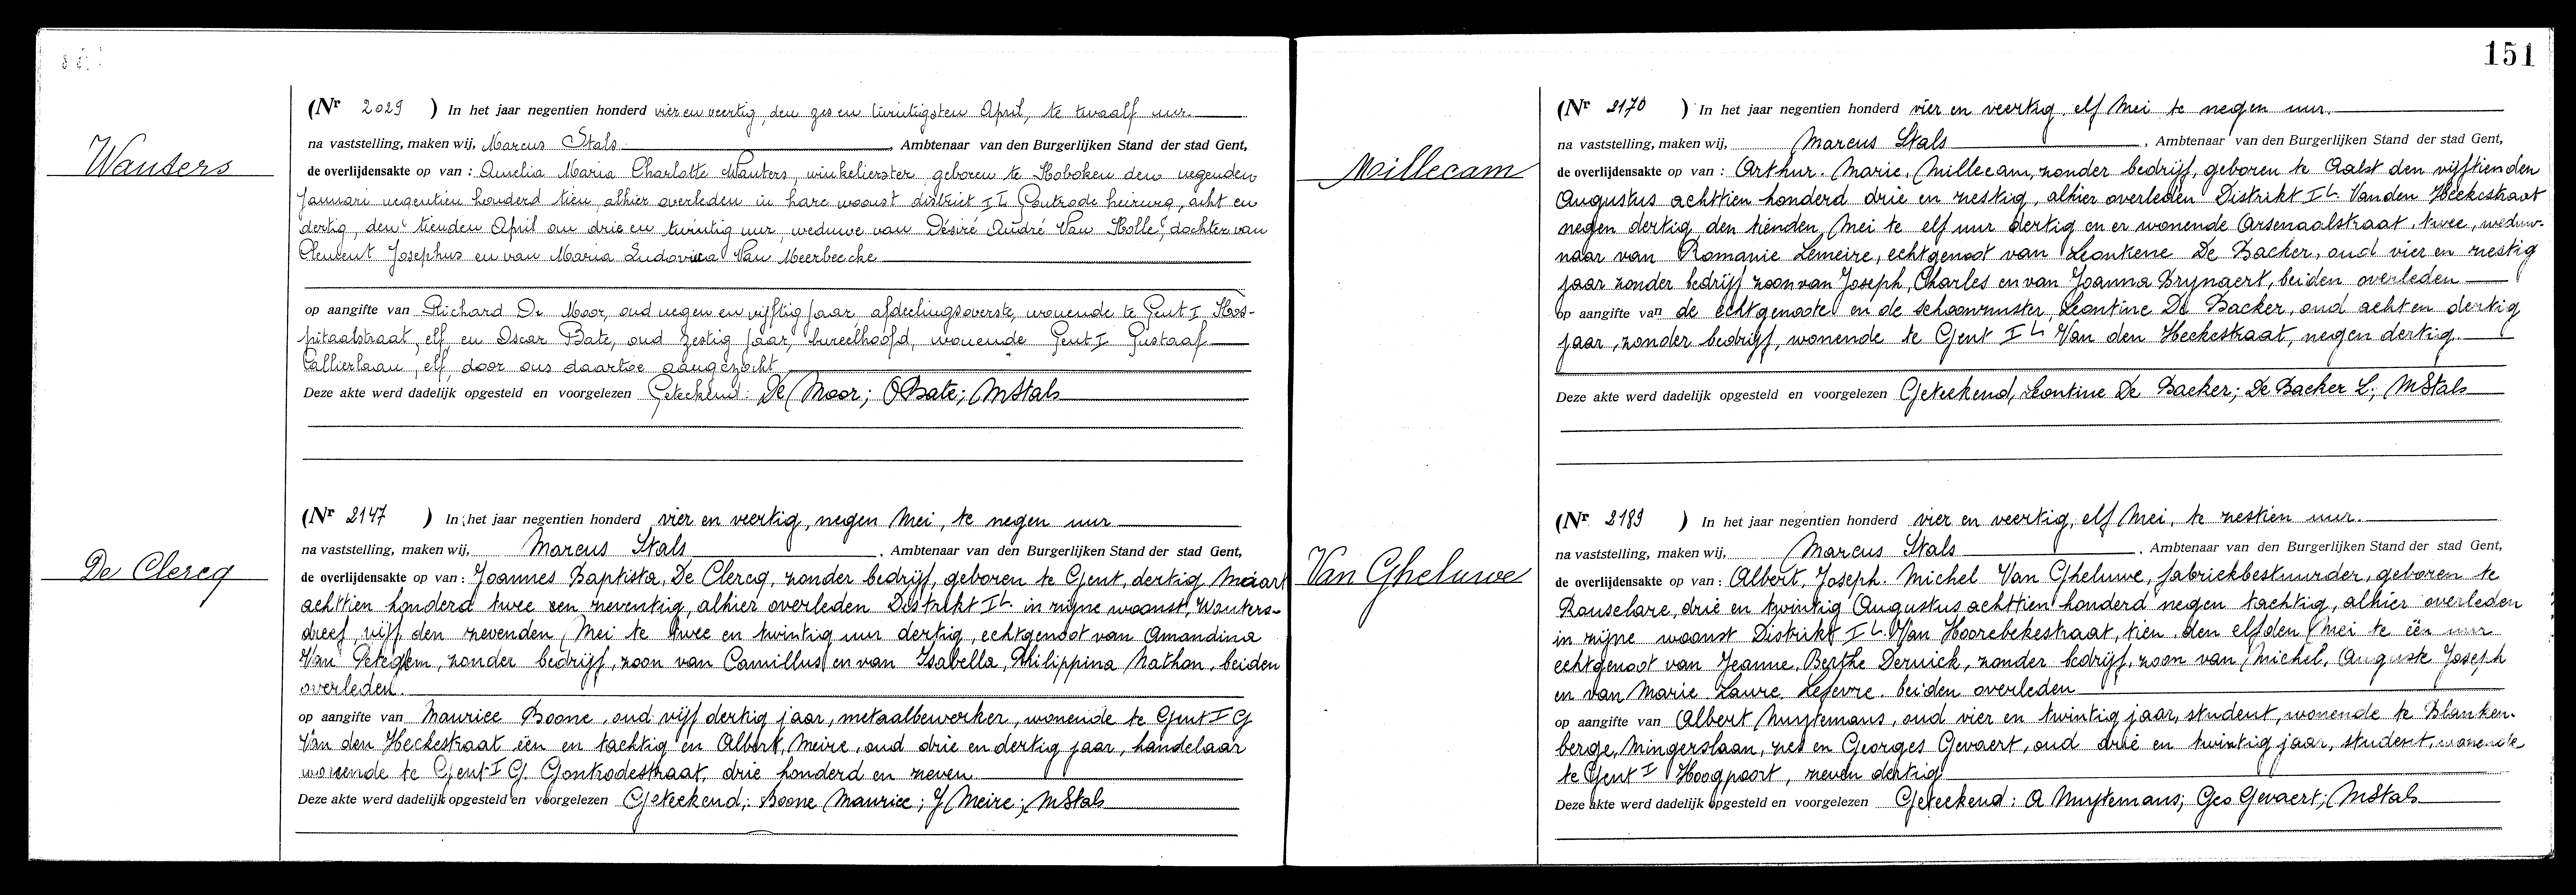 151
Wauters
(Nr 2029 ) In het jaar negentien honderd vier en veertig, den zes en twintigsten April, te twaalf uur
na vaststelling, maken wij, Marcus Stals , Ambtenaar van den Burgerlijken Stand der stad Gent,
de overlijdensakte op van : Amelia Maria Charlotte Wauters, winkelierster geboren te Hoboken den negenden
Januari negentien honderd tien, alhier overleden in hare woonst district IL heirweg, acht en
dertig, den tienden April om drie en twintig uur, weduwe van Désiré André Van Holle, dochter van
Clement Josephus en van Maria Ludovica Van Meerbeecke
op aangifte van Richard De Moor, oud negen en vijftig jaar afdeelingsoverste, wonende te Gent I Hos-
pitaalstraat, elf en Oscar Bate, oud zestig jaar, bureelhoofd, wonende Gent I Gustaaf
Callierlaan, elf door ons daartoe aangezocht
Deze akte werd dadelijk opgesteld en voorgelezen Geteekend: De Moor; OBate; MStals
De Clercq
(Nr 2147 ) In het jaar negentien honderd vier en veertig, negen Mei, te negen uur
na vaststelling, maken wij, Marcus Stals , Ambtenaar van den Burgerlijken Stand der stad Gent,
de overlijdensakte op van : Joannes Baptista, De Clercq, zonder bedrijf, geboren te Gent, dertig Maart
achttien honderd twee en zeventig, alhier overleden Distrikt IL. in zijne woonst, Wauters-
dreef, vijf den zevenden, Mei te twee en twintig uur dertig, echtgenoot van Amandina
Van Peteghem, zonder bedrijf, zoon van Camillus en van Isabella, Philippina Nathan, beiden
overleden.
op aangifte van Maurice Boone, oud vijf dertig jaar, metaalbewerker, wonende te Gent I G
Van den Heckestraat één en tachtig en Albert, Meire, oud drie en dertig jaar, handelaar
wonende te Gent I G. Gontrodestraat, drie honderd en zeven
Deze akte werd dadelijk opgesteld en voorgelezen Geteekend; Boone Maurice; J Meire; MStals
Millecam
(Nr 2170 ) In het jaar negentien honderd vier en veertig, elf Mei te negen uur.
na vaststelling, maken wij, Marcus Stals , Ambtenaar van den Burgerlijken Stand der stad Gent,
de overlijdensakte op van : Arthur. Marie, Millecam, zonder bedrijf, geboren te Aalst den vijftienden
Augustus achttien honderd drie en zestig, alhier overleden Distrikt IL. Vanden Heekestraat
negen dertig, den tienden, Mei te elf uur dertig en er wonende Arsenaalstraat, twee, weduw-
naar van Romanie Lemeire, echtgenoot van Leontiene De Backer, oud vier en zestig
jaar zonder bedrijf zoon van Joseph, Charles en van Joanna Brijnaert, beiden overleden
op aangifte van de echtgenoote en de schoonzuster, Leontine De Backer, oud acht en dertig
jaar, zonder bedrijf, wonende te Gent IL Van den Heekestraat, negen dertig.
Deze akte werd dadelijk opgesteld en voorgelezen Geteekend, Leontine De Backer; De Backer L; MStals
Van Gheluwe
(Nr 2189 ) In het jaar negentien honderd vier en veertig, elf Mei, te zestien uur.
na vaststelling, maken wij, Marcus Stals , Ambtenaar van den Burgerlijken Stand der stad Gent,
de overlijdensakte op van : Albert, Joseph. Michel Van Gheluwe, fabriekbestuurder, geboren te
Rouselare, drie en twintig Augustus achttien honderd negen tachtig, alhier overleden
in zijne woonst Distrikt IL. Van Hoorebekestraat, tien. den elfden Mei te één uur
echtgenoot van Jeanne, Berthe Deruick, zonder bedrijf, zoon van Michel, Auguste Joseph
en van Marie. Laure. Lefevre. beiden overleden
op aangifte van Albert Muytemans, oud vier en twintig jaar, student, wonende te Blanken-
berge, Mingerslaan, zes en Georges Gevaert, oud drie en twintig jaar, student, wonende
te Gent I Hoogpoort, zeven dertig
Deze akte werd dadelijk opgesteld en voorgelezen Geteekend: A Muytemans; Geo Gevaert; MStals